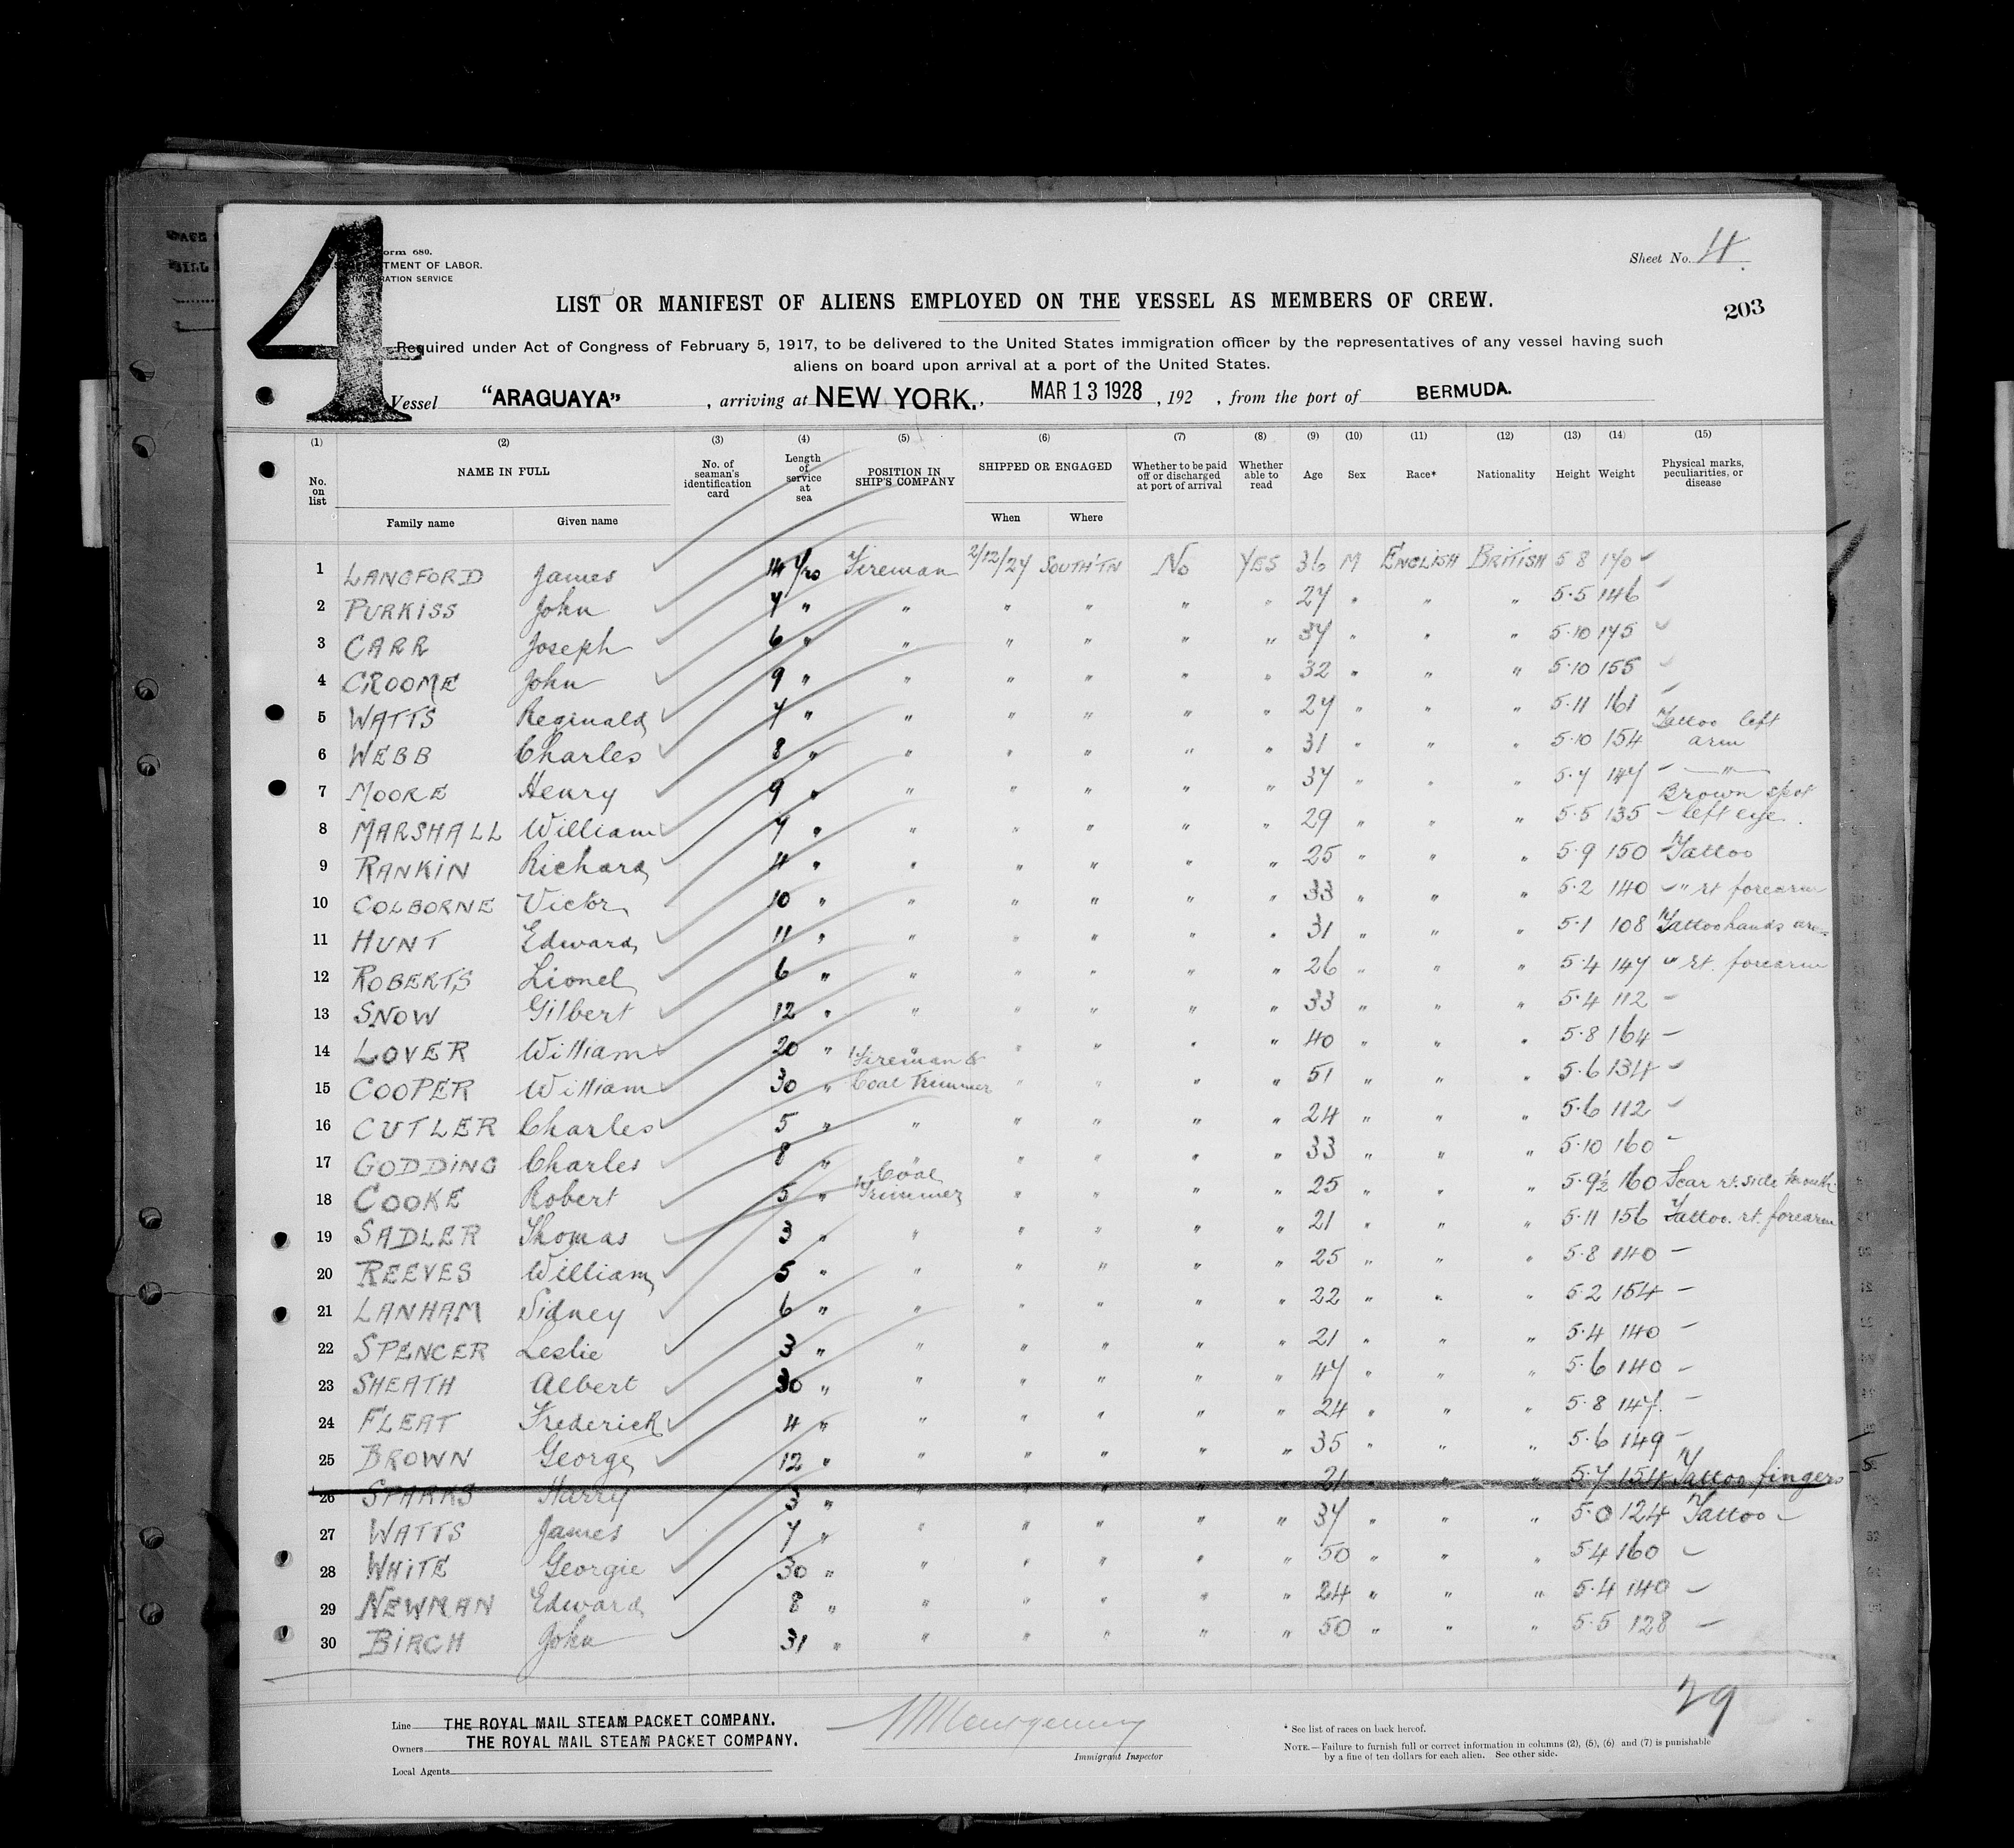 4
Form 680.
DEPARTMENT OF LABOR.
IMMIGRATION SERVICE
Sheet No. 4
203
LIST OR MANIFEST OF ALIENS EMPLOYED ON THE VESSEL AS MEMBERS OF CREW.
Required under Act of Congress of February 5, 1917, to be delivered to the United States immigration officer by the representatives of any vessel having such
aliens on board upon arrival at a port of the United States.
Vessel "ARAGUAYA", arriving at NEW YORK., MAR 13 1928, 192 , from the port of BERMUDA.
(1) (2) (3) (4) (5) (6) (7) (8) (9) (10) (11) (12) (13) (14) (15)
No. on list NAME IN FULL Family name Given name No. of seaman's identification card Length of service at sea POSITION IN SHIP'S COMPANY SHIPPED OR ENGAGED When Where Whether to be paid off or discharged at port of arrival Whether able to read Age Sex Race* Nationality Height Weight Physical marks, peculiarities, or disease
1 LANGFORD James 14 Yrs Fireman 2/12/27 SOUTH'TN No YES 36 M ENGLISH BRITISH 5 8 170
2 PURKISS John 7 " " " " " " 27 " " " 5·5 146
3 CARR Joseph 6 " " " " " " 37 " " " 5·10 175
4 CROOME John 9 " " " " " " 32 " " " 5·10 155
5 WATTS Reginald 7 " " " " " " 27 " " " 5·11 161
6 WEBB Charles 8 " " " " " " 31 " " " 5·10 154 Tattoo left arm
7 MOORE Henry 9 " " " " " " 37 " " " 5·7 147 — " —
8 MARSHALL William 7 " " " " " " 29 " " " 5·5 135 Brown spot left eye.
9 RANKIN Richard 4 " " " " " " 25 " " " 5·9 150 Tattoo
10 COLBORNE Victor 10 " " " " " " 33 " " " 5·2 140 " rt forearm
11 HUNT Edward 11 " " " " " " 31 " " " 5·1 108 Tattoo hands
12 ROBERTS Lionel 6 " " " " " " 26 " " " 5·4 147 " rt. forearm
13 SNOW Gilbert 12 " " " " " " 33 " " " 5·4 112 -
14 LOVER William 20 " " " " " " 40 " " " 5·8 164 -
15 COOPER William 30 " Fireman & Coal Trimmer " " " " 51 " " " 5·6 134
16 CUTLER Charles 5 " " " " " " 24 " " " 5·6 112
17 GODDING Charles 8 " " " " " " 33 " " " 5·10 160 -
18 COOKE Robert 5 " Coal Trimmer " " " " 25 " " " 5·9½ 160 Scar rt. side mouth
19 SADLER Thomas 3 " " " " " " 21 " " " 5·11 156 Tattoo. rt. forearm
20 REEVES William 5 " " " " " " 25 " " " 5·8 140 -
21 LANHAM Sidney 6 " " " " " " 22 " " " 5·2 154 -
22 SPENCER Leslie 3 " " " " " " 21 " " " 5·4 140 -
23 SHEATH Albert 30 " " " " " " 47 " " " 5·6 140 -
24 FLEAT Frederick 4 " " " " " " 24 " " " 5·8 147. -
25 BROWN George 12 " " " " " " 35 " " " 5·6 149 -
26 SPARKS Harry 3 " " " " " " 21 " " " 5·7 154 Tattoo fingers
27 WATTS James 7 " " " " " " 37 " " " 5·0 124 Tattoo -
28 WHITE Georgie 30 " " " " " " 50 " " " 5·4 160
29 NEWMAN Edward 8 " " " " " " 24 " " " 5·4 140
30 BIRCH John 31 " " " " " " 50 " " " 5·5 128 -
29
Line THE ROYAL MAIL STEAM PACKET COMPANY.
Owners THE ROYAL MAIL STEAM PACKET COMPANY.
Local Agents
Montgomery
Immigrant Inspector
* See list of races on back hereof.
NOTE.—Failure to furnish full or correct information in columns (2), (5), (6) and (7) is punishable
by a fine of ten dollars for each alien. See other side.